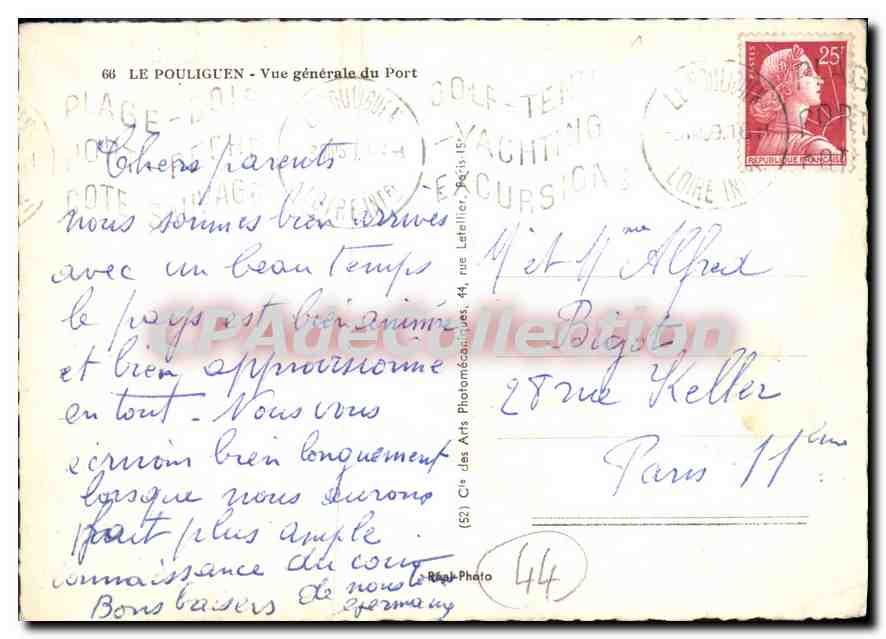 66 LE POULIGUEN - Vue générale du Port
PLAGE - BOIS
GOLF - TENNIS
YACHTING
EXCURSIONS
LOIRE INFRE
POSTES
25F
REPUBLIQUE FRANÇAISE
Chers parents
nous sommes bien arrivés
avec un beau temps
le pays est bien animé
et bien approvisionné
en tout - Nous vous
écrirons bien longuement
lorsque nous aurons
fait plus ample
connaissance du coin
Bons baisers de nous tous
Germany
M et Mme Alfred
Bigot
28 rue Keller
Paris 11ème
(52) Cie des Arts Photomécaniques, 44, rue Letellier, Paris-15e
Réal-Photo
44
CPAdeCollection